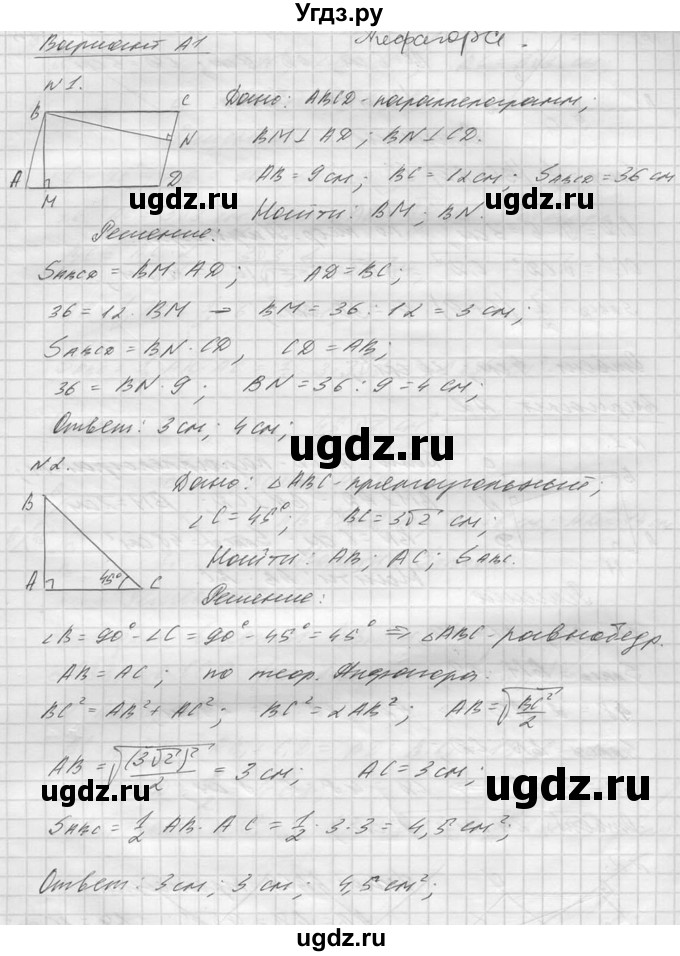 Угдз.ру
Вариант А1
Пифагора.
N1.
B C N A M D
Дано: ABCD - параллелограмм;
BM⊥AD; BN⊥CD.
AB = 9 см; BC = 12 см; SABCD = 36 см
Найти: BM; BN.
Решение:
SABCD = BM · AD; AD = BC;
36 = 12 · BM — BM = 36 : 12 = 3 см;
SABCD = BN · CD, CD = AB;
36 = BN · 9; BN = 36 : 9 = 4 см;
Ответ: 3 см; 4 см;
ugdz.ru ugdz.ru
N2.
B A 45° C
Дано: △ABC - прямоугольный;
∠C = 45°; BC = 3√2 см;
Найти: AB; AC; SABC.
Решение:
∠B = 90° - ∠C = 90° - 45° = 45° ⇒ △ABC - равнобедр.
AB = AC; по теор. Пифагора.
BC² = AB² + AC²; BC² = 2AB²; AB = √BC²/2
AB = √(3√2)²/2 = 3 см; AC = 3 см;
ugdz.ru ugdz.ru
SABC = 1/2 AB · AC = 1/2 · 3 · 3 = 4,5 см²;
Ответ: 3 см; 3 см; 4,5 см²;
ugdz.ru
ugdz.ru